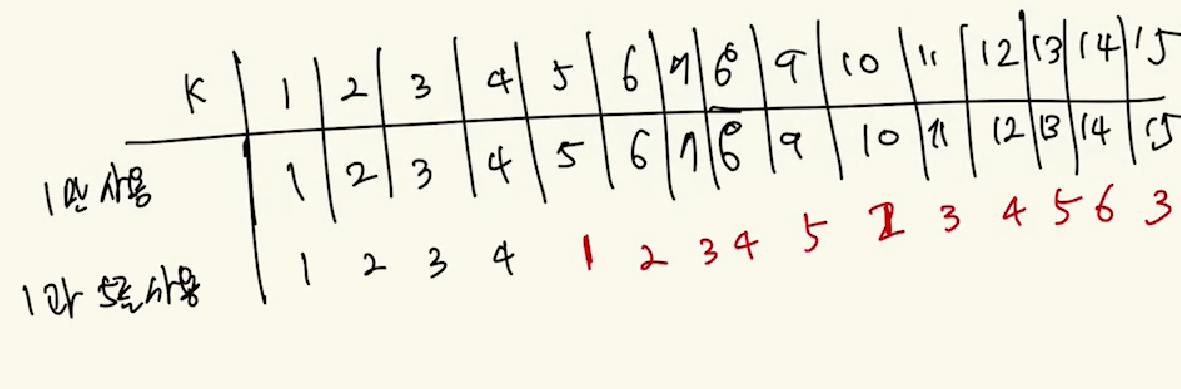 K 1 2 3 4 5 6 7 8 9 10 11 12 13 14 15
1만 사용 1 2 3 4 5 6 7 8 9 10 11 12 13 14 15
1과 5를 사용 1 2 3 4 1 2 3 4 5 2 3 4 5 6 3